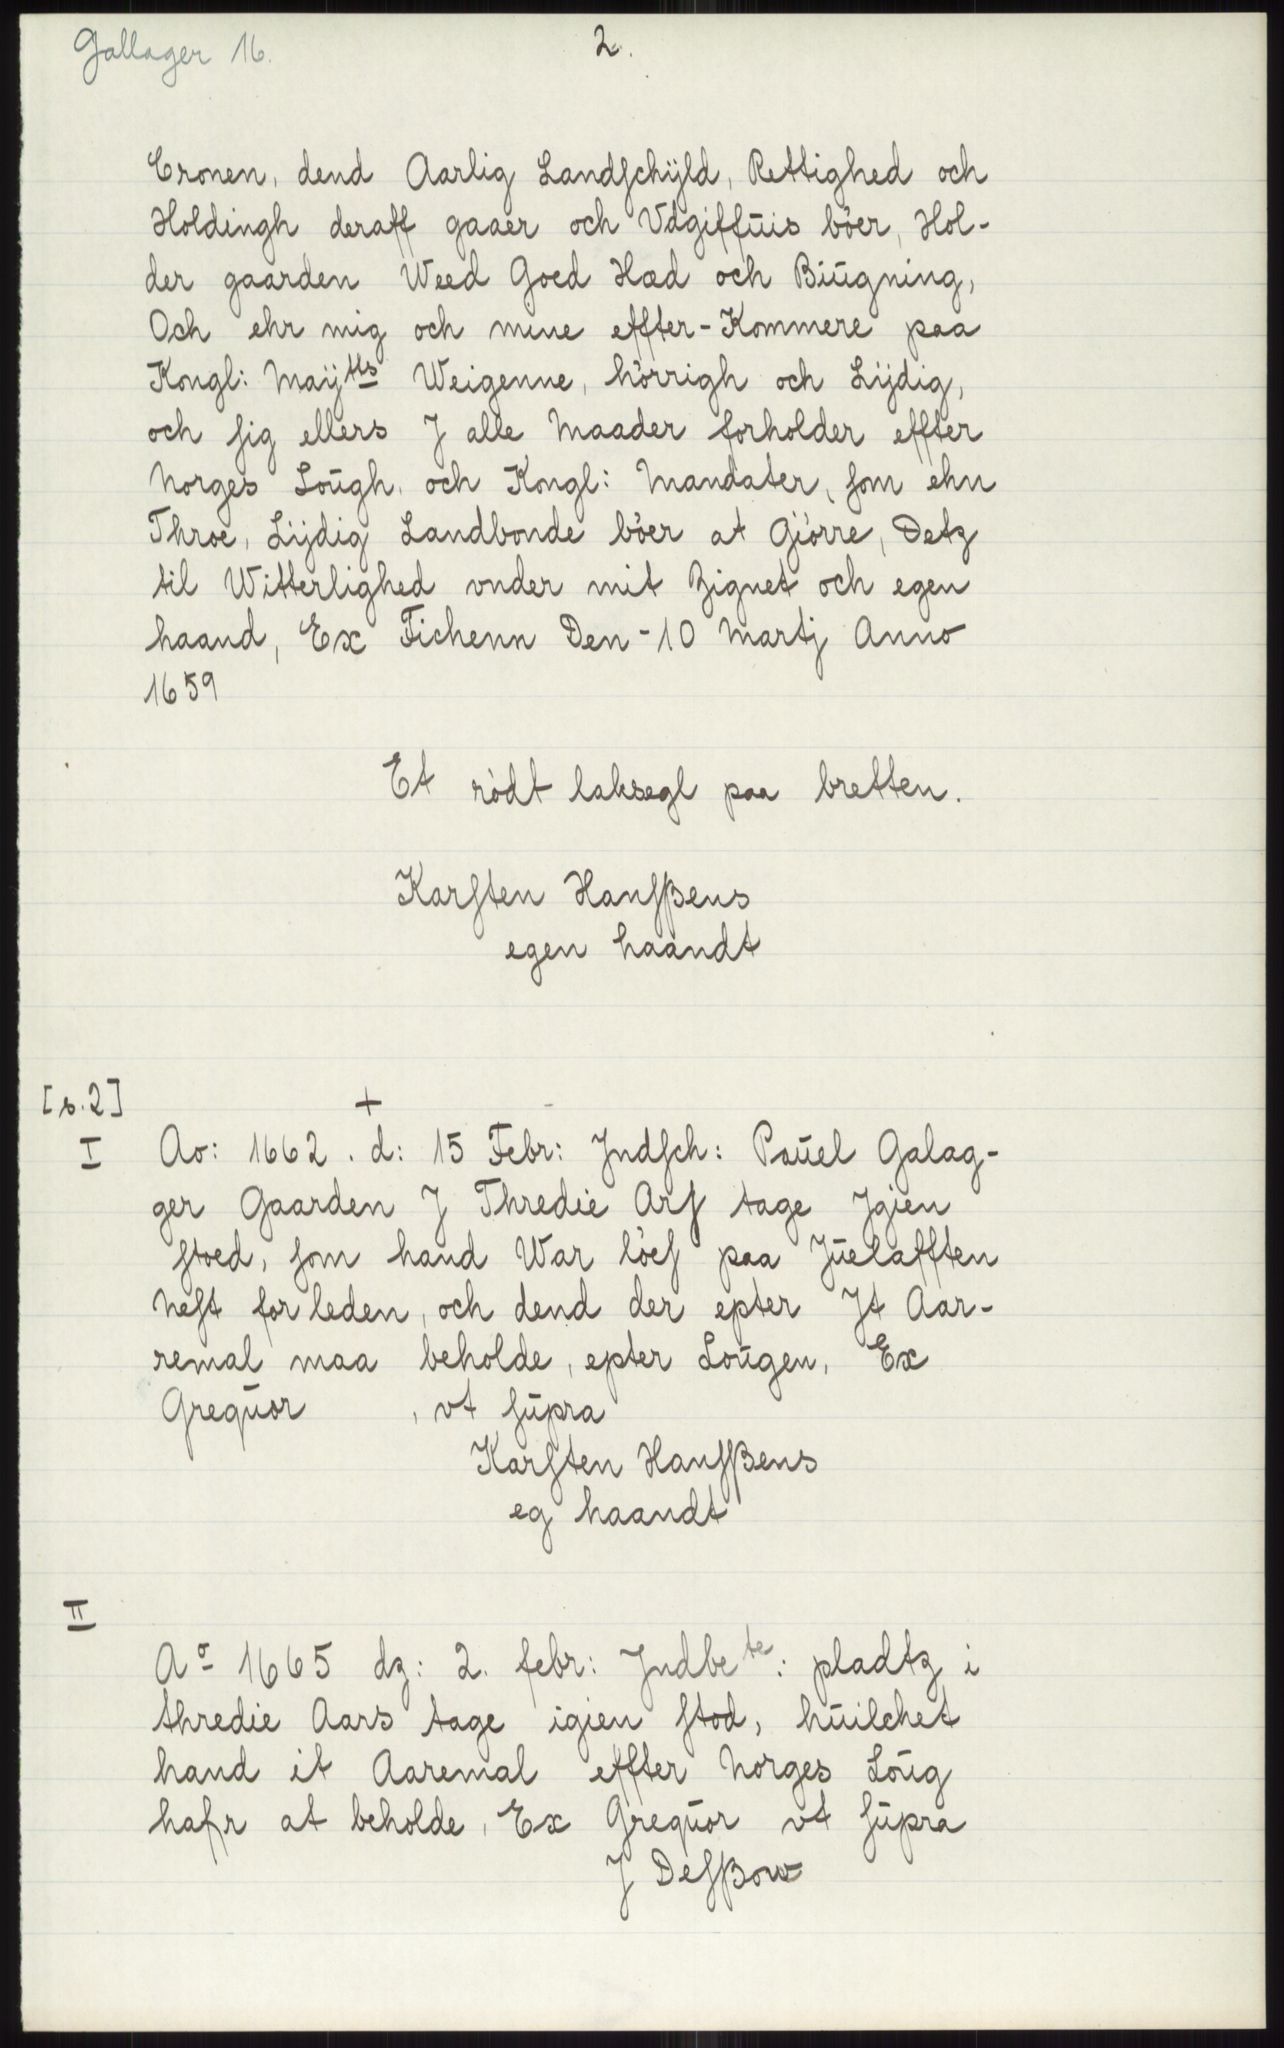 Gallager 16.
2.
Cronen, dend Aarlig Landſchÿld, Rettighed och
Holdingh deraff gaaer och Vdgiffūis bör, Hol-
der gaarden Weed Goed Hæd och Biūgning,
Och ehr mig och mine effter-Kommere paa
Kongl: Maÿtts Weigenne, hörrigh och Lijdig,
och ſig ellers J alle Maader forholder effter
Norges Loūgh, och Kongl: Mandater, ſom ehn
Throe, Lijdig Landbonde böer at Giörre, Detz
til Witterlighed vnder mit Zignet och egen
haand, Ex Fichenn Den - 10 Martj Anno
1659
Et rödt laksegl paa bretten.
Karſten Hanſßens
egen haandt
[s.2]
+
I Ao: 1662. d: 15 Febr: Jndſch: Paūel Galag-
ger Gaarden J Thredie Arſ tage Jgien
ſtoed, ſom hand War löeſ paa Jūelafften
Neſt for leden, och dend der epter Jt Aar-
remal maa beholde, epter Loūgen, Ex
Greqūor , vt ſūpra
Karſten Hanſßens
eg haandt
II
Ao 1665 dz: 2. febr: Jndbete: pladtz i
thredie Aars tage igien ſtod, hūilchet
hand it Aaremal effter Norges Loūg
hafr at beholde, Ex Greqūor vt ſūpra
J Deſßow